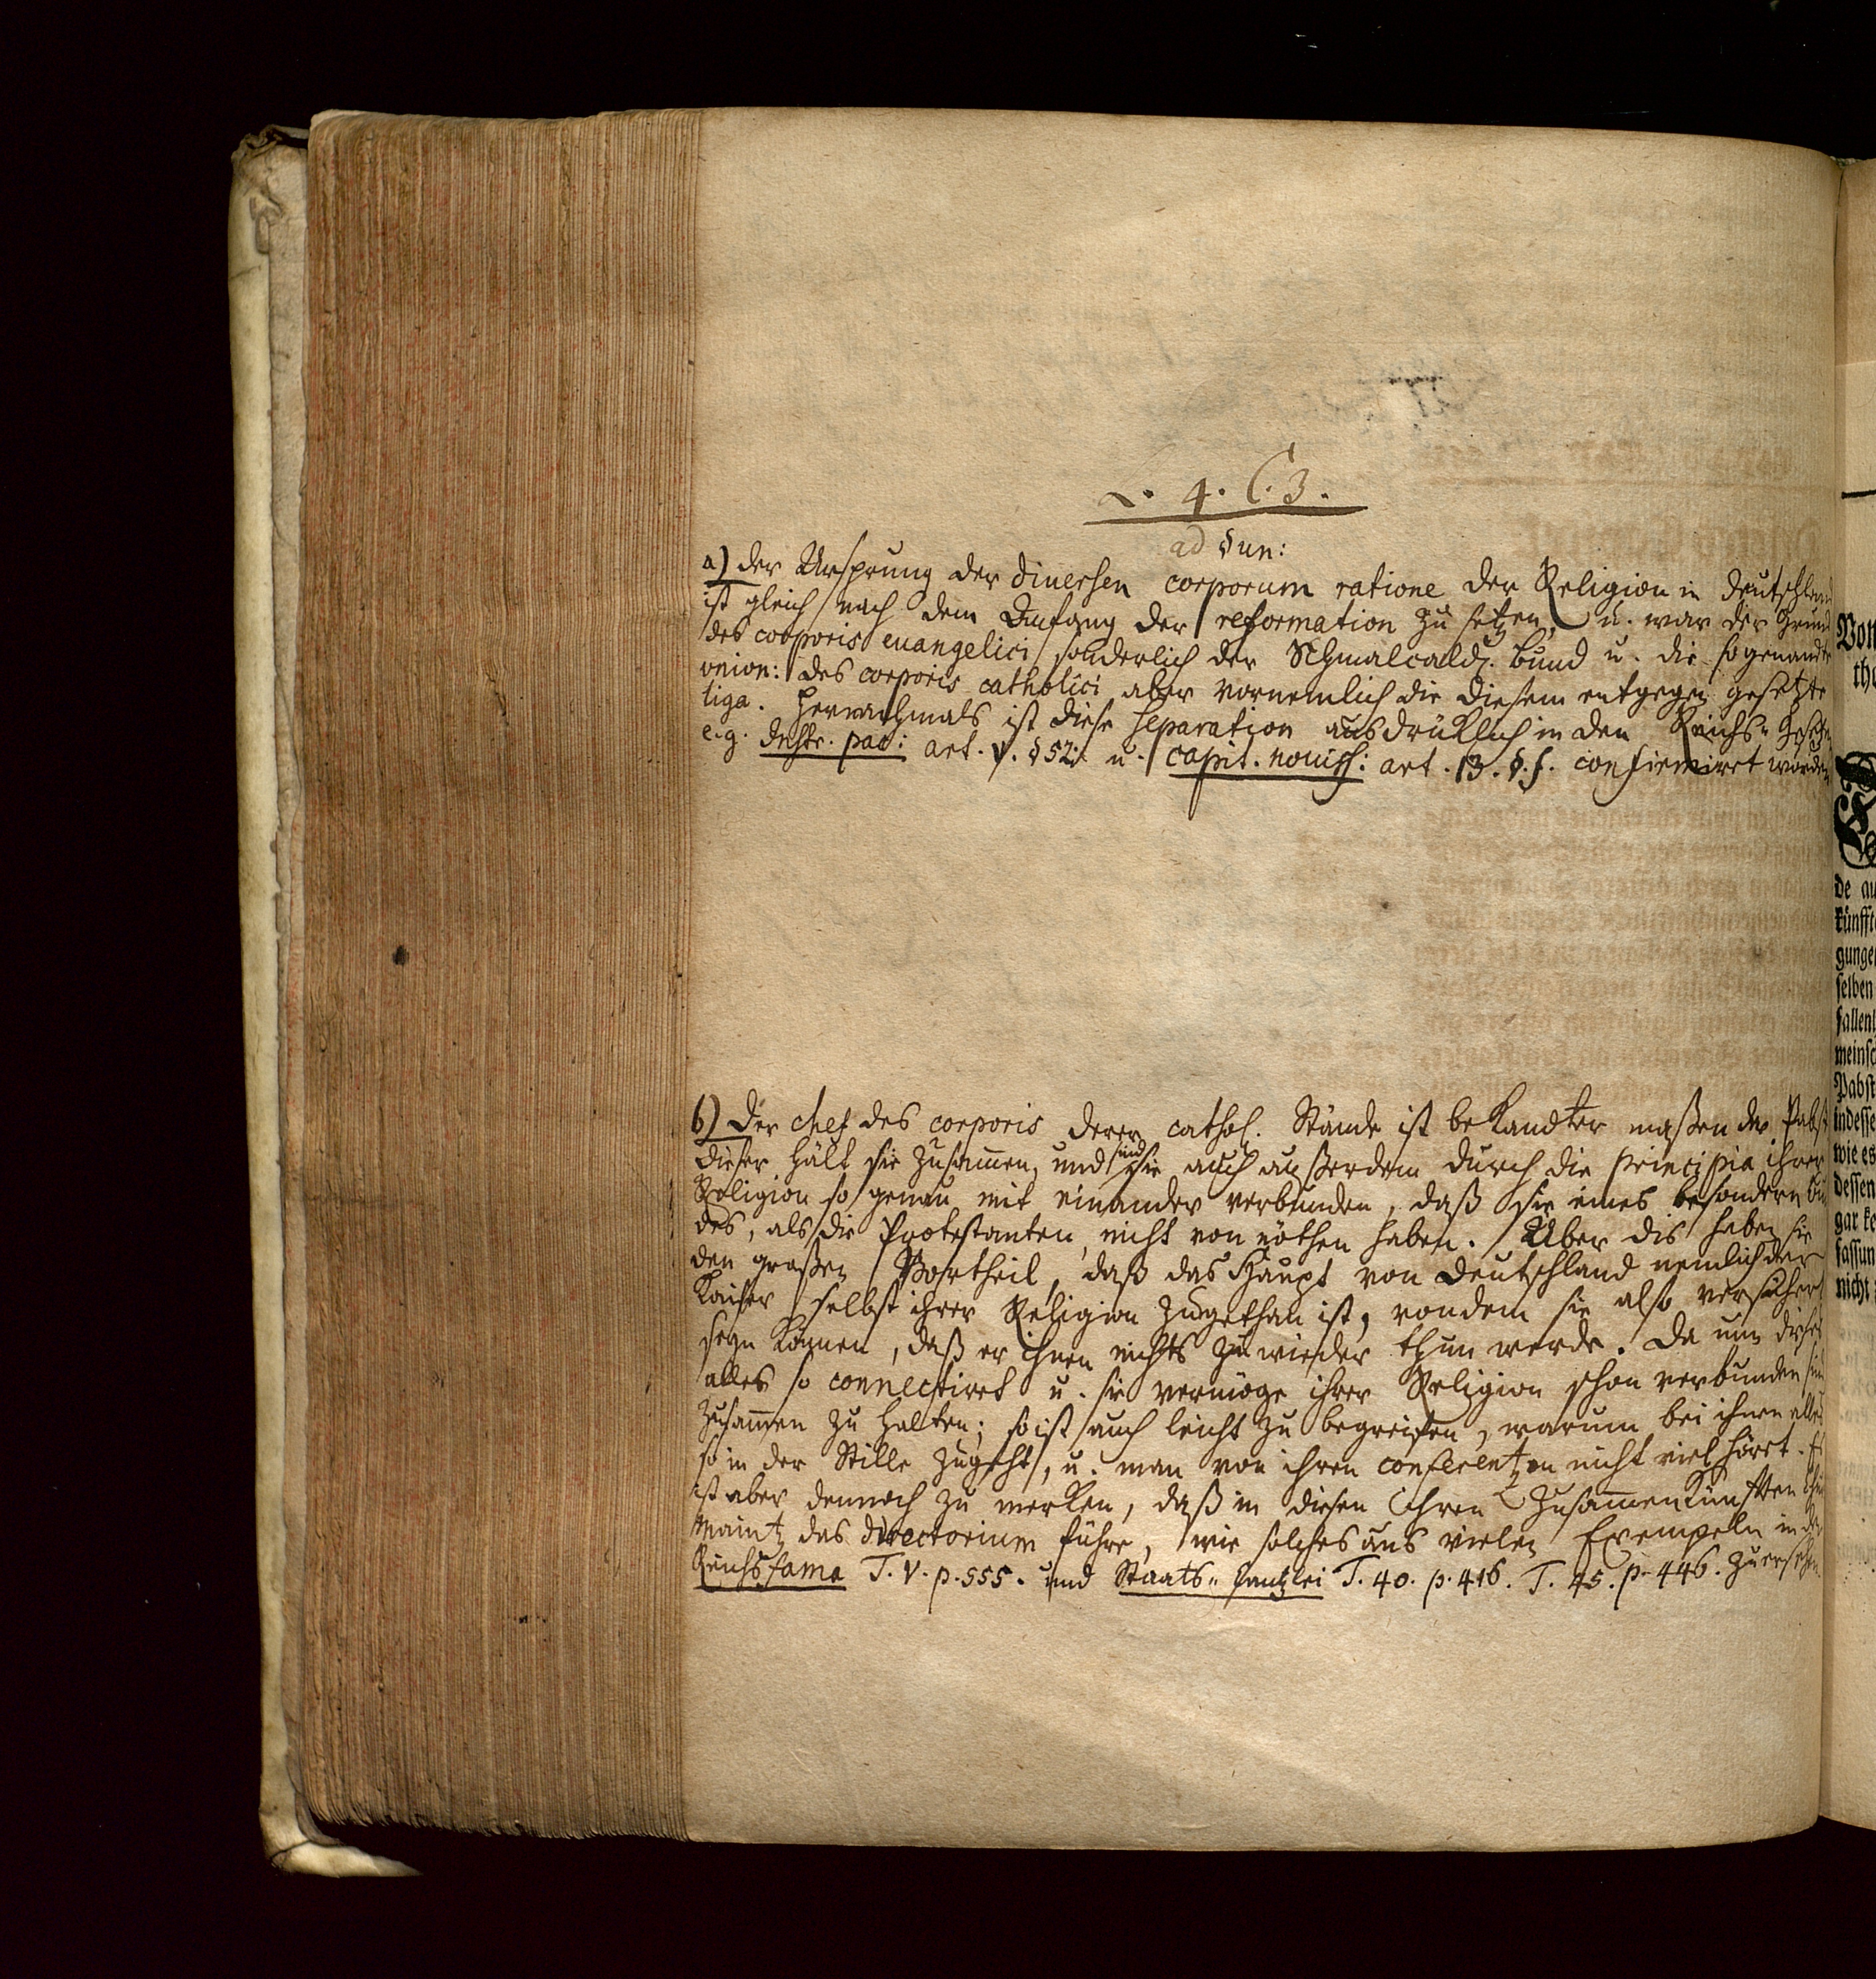 L. 4. C. 3.
ad § un:
a) der Ursprung der diversen corporum ratione der Religion in Deutschland
ist gleich nach dem Anfang der reformation zu setzen, u. war der Grund
des corporis euangelici sonderlich der Schmalcald. Bund u. die sogenandte
union: des corporis catholici aber vornemlich die diesem entgegen gesetzte
liga. Hernachmals ist diese separation ausdrüklich in den Reichs-Gesetzen
e. g. Instr. pac: art. V. § 52. u. capit. noviss: art. 13. §. f. confirmiret worden
b) Der chef des corporis derer cathol. Stände ist bekandter maßen der Pabst
dieser hält sie zusammen, und sind sie auch außerdem durch die principia ihrer
Religion so genau mit einander verbunden, daß sie eines besondern Bun
des, als die Protestanten, nicht von nöthen haben. Über dis haben sie
den großen Vortheil, daß das Haupt von Deutschland nemlich der
Kaiser selbst ihrer Religion zugethan ist, von dem sie also versichert
seyn können, daß er ihnen nichts zuwieder thun werde. Da nun dieses
alles so connectiret u. sie vermöge ihrer Religion schon verbunden sind
zusammen zu halten; so ist auch leicht zu begreifen, warum bei ihnen alles
so in der Stille zugeht, u. man von ihren conferentzen nicht viel höret. Es
ist aber dennoch zu merken, daß in diesen ihren Zusammenkünften Chur
Maintz das directorium führe, wie solches aus vielen Exempeln in der
Reichsfama T. V. p. 555. und Staats-Cantzlei T. 40. p. 416. T. 45. p. 446. zu ersehen
Von
the
de au
künffte
gungen
selben
fallenl
meinsc
Pabst
indesse
wie es
dessen
gar ke
fassun
nicht